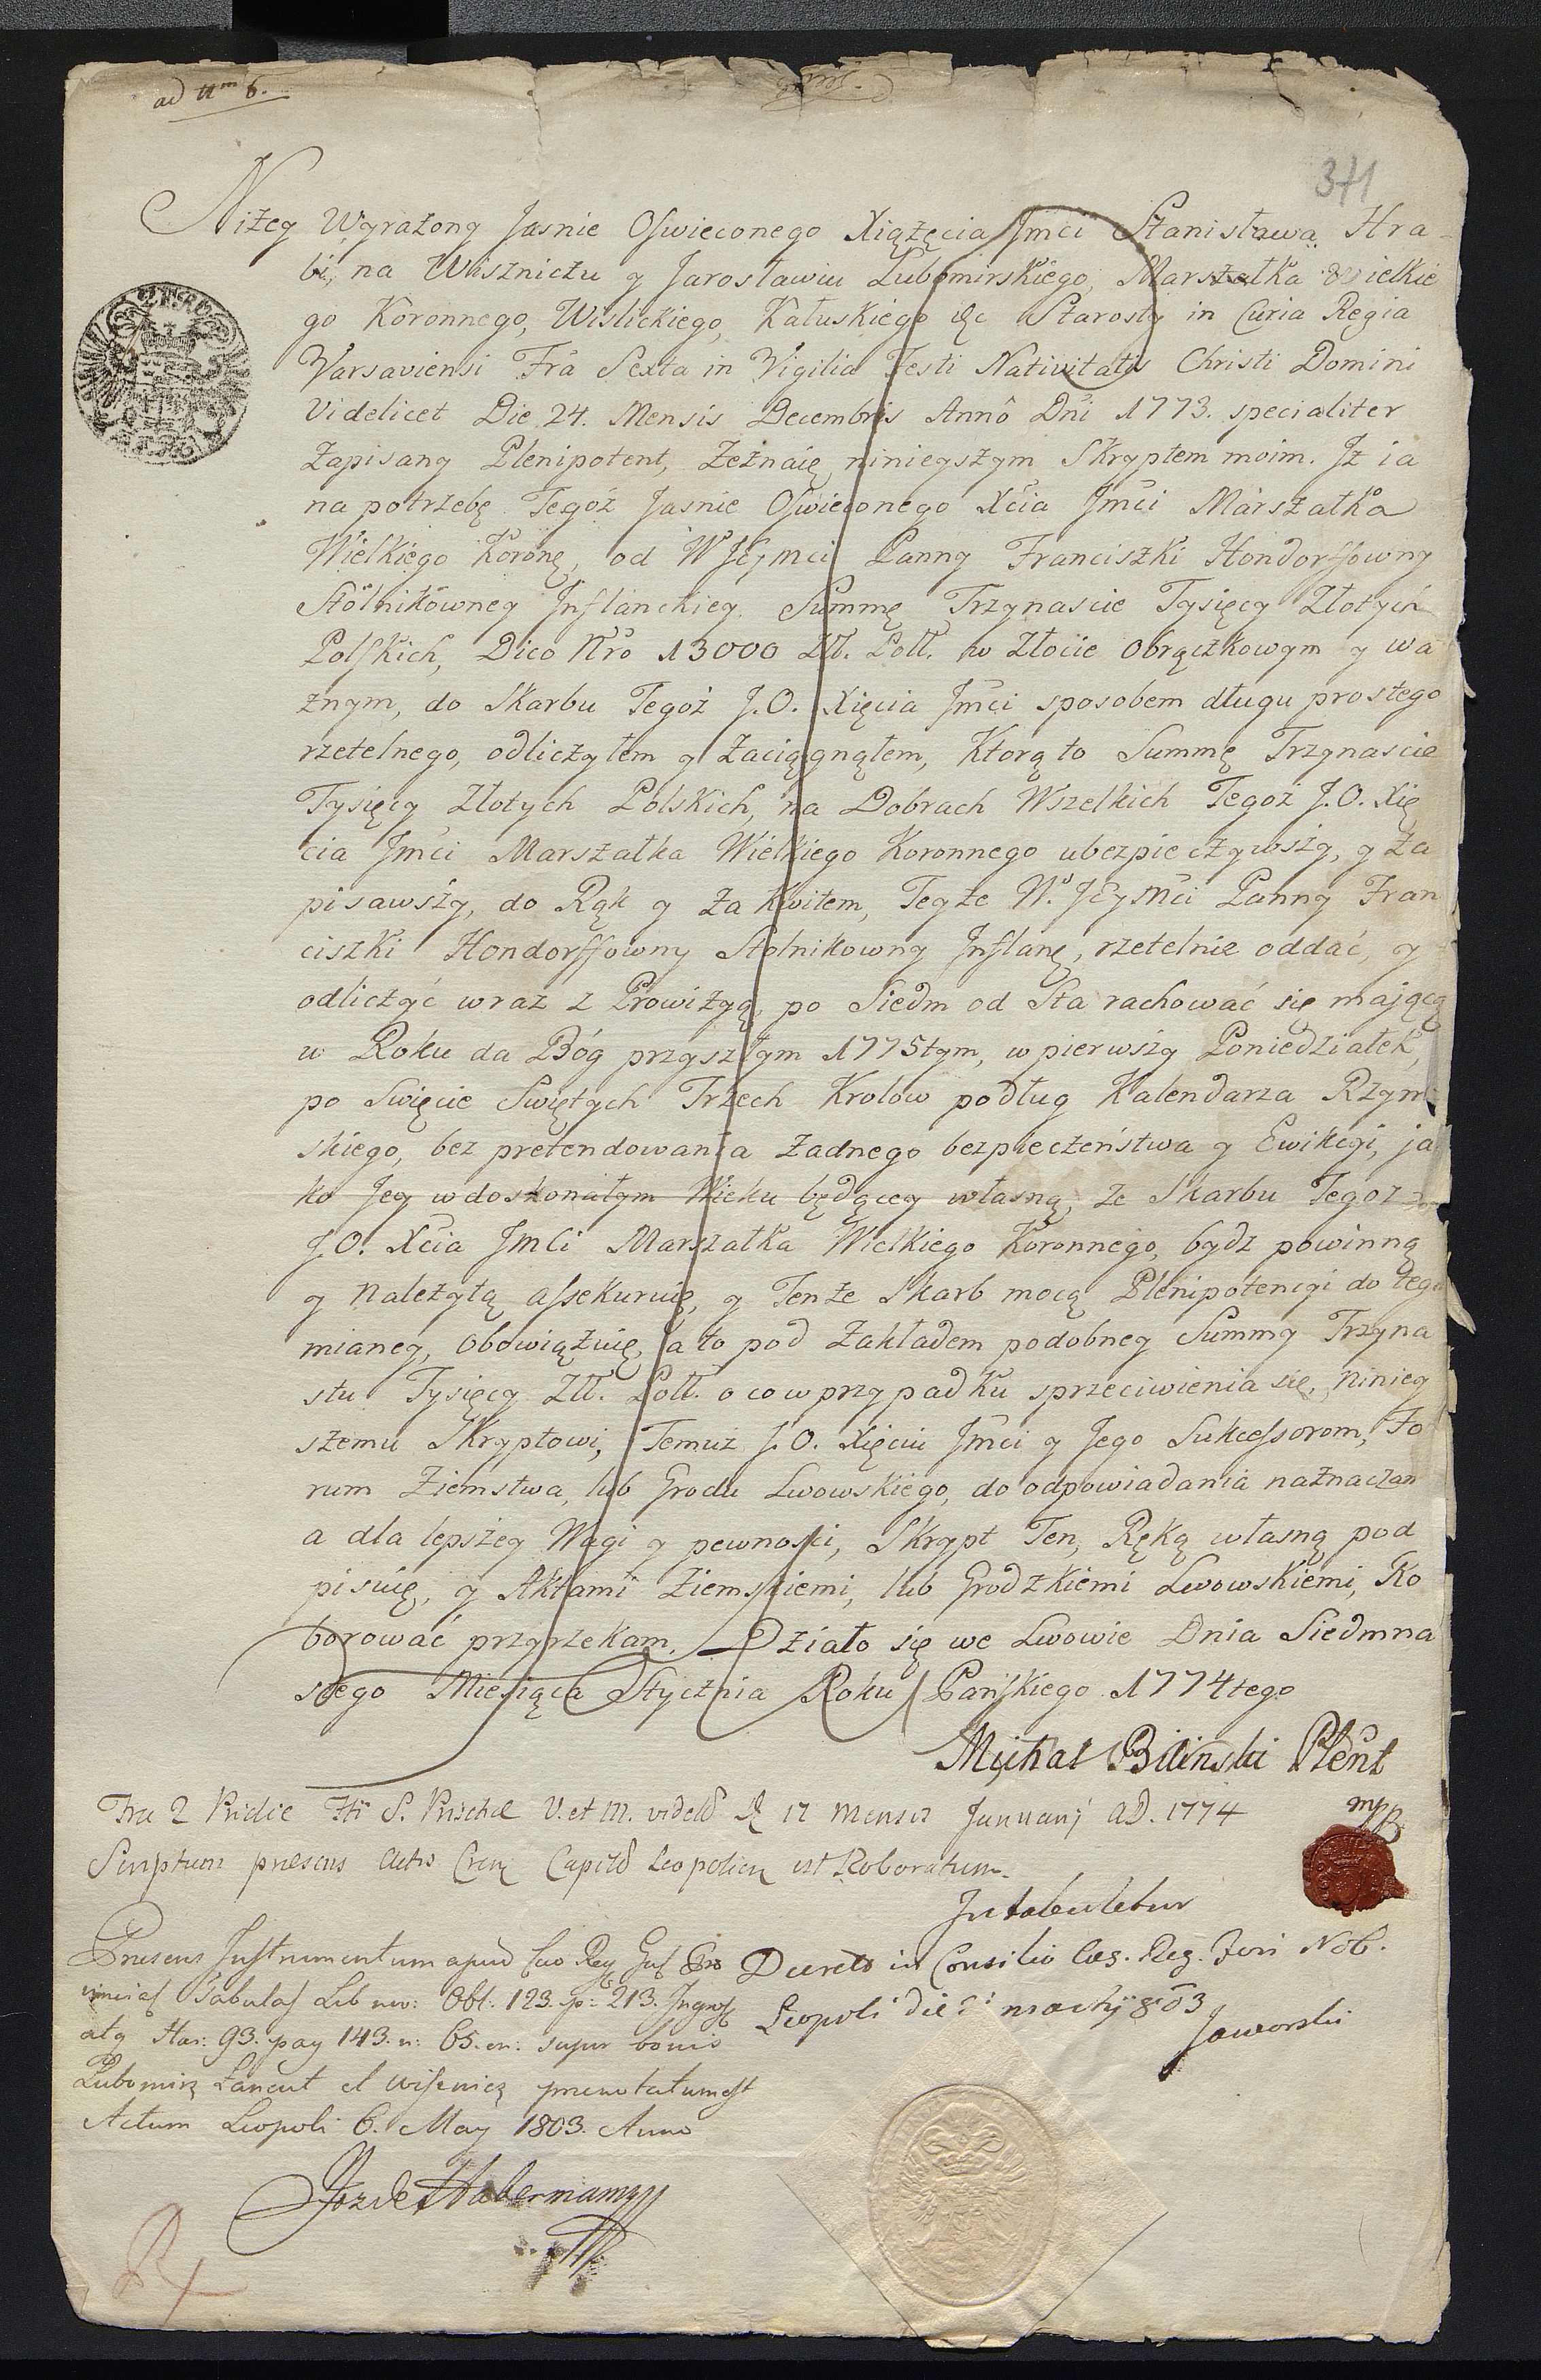 ad Num 6.
371
Niżey Wyrażony Jasnie Oswieconego Xiążęcia Jmci Stanisława Hra-
bi, na Wiszniczu y Jarosławiu Lubomirskiego, Marszałka Wielkie
go Koronnego, Wislickiego, Kałuskiego &c Starosty in Curia Regia
Varsaviensi Fra Sexta in Vigilia Festi Nativitatis Christi Domini
Videlicet Die 24. Mensis Decembris Annô Dni 1773. specialiter
Zapisany Plenipotent, Zeznaię ninieyszym Skryptem moim. Jż ia
na potrzebę Tegoż Jasnie Oswieconego Xcia Jmci Marszałka
Wielkiego Koronę, od W Jeymci Panny Franciszki Hondorffowny
Stolnikowney Inflanckiey Summę Trzynascie Tysięcy Złotych
Polskich, Dico Nro 13000 Zll. Poll. w Złocie obrączkowym y wa
żnym, do Skarbu Tegoż J.O. Xięcia Jmci sposobem długu prostego
rzetelnego, odliczyłem y Zaciągnąłem, Ktorą to Summę Trzynascie
Tysięcy Złotych Polskich, na Dobrach Wszelkich Tegoż J.O. Xię
cia Jmci Marszałka Wielkiego Koronnego ubezpieczywszy, y Za
pisawszy, do Rąk y Za Kwitem, Teyże W. Jeymci Panny Fran
ciszki Hondorffowny Stolnikowny Inflanę, rzetelnie oddać, y
odliczyć wraz z Prowizyą, po Siedm od Sta rachować się maiącą
w Roku da Bóg przyszłym 1775tym, w pierwszy Poniedziałek,
po Swięcie Swiętych Trzech Krolow podług Kalendarza Rzym
skiego, bez pretendowania Żadnego bezpieczeństwa y Ewikcyi, ja
ko Jey w doskonałym Wieku będącey własną, Ze Skarbu Tegoż
J.O. Xcia Jmci Marszałka Wielkiego Koronnego, bydz powinną
y Należytą assekuruię, y Tenże Skarb mocą Plenipotencyi do teg
mianey, obowiązuię, a to pod Zakładem podobney Summy Trzyna
stu Tysięcy Zll. Poll. o co w przypadku sprzeciwienia się, niniey
szemu Skryptowi, Temuż J.O. Xięciu Jmci y Jego Sukcessorom, Fo
rum Ziemstwa, lub Grodu Lwowskiego, do odpowiadania naznaczam
a dla lepszey Wagi y pewnosci, Skrypt Ten, Ręką własną pod
pisuię, y Aktami Ziemskiemi, lub Grodzkiemi Lwowskiemi, Ro
borować przyrzekam. Działo się we Lwowie Dnia Siedmna
stego Miesiąca Stycznia Roku Pańskiego 1774tego
Michał Bilinski Plent
mpB
Fra 2 Pridie Fti S. Priscae V. et M. videld d 17 Mensis Januarij AD. 1774
Scriptum praesens Actis Capitd Leopolien est Roboratum.
Intabuletur
Decreto in Consilio Caes. Reg. Fori Nob.
Leopoli die martij 803
Jaworski
Praesens Instrumentum apud Caes Reg Gal Pro
vincial Tabulas Lib nov: Obl: 123. p: 213. Ingross
atq Har: 93. pag 143. n: 65. on: super bonis
Lubomirz Łancut et Wisnicz praenotatum est
Actum Leopoli 6. May 1803. Anno
Jozef Habermann